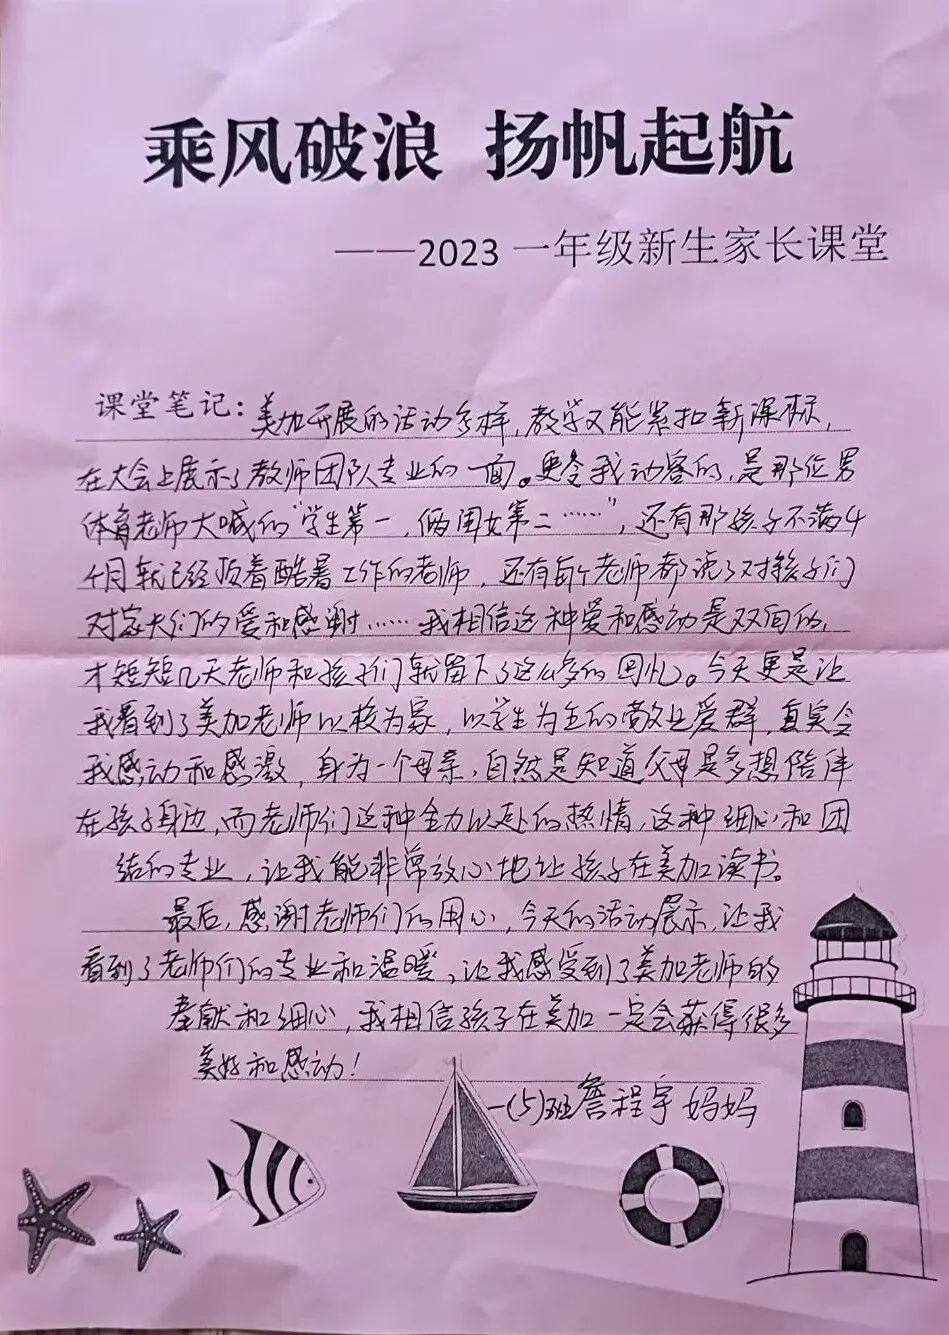 乘风破浪 扬帆起航
——2023 一年级新生家长课堂
课堂笔记：美加开展的活动多样，教学又能紧扣新课标，
在大会上展示了教师团队专业的一面。更令我动容的，是那位男
体育老师大喊的“学生第一，俩闺女第二……”，还有那孩子不满4
个月就已经顶着酷暑工作的老师，还有每个老师都说了对孩子们
对家长们的爱和感谢……我相信这种爱和感动是双向的，
才短短几天老师和孩子们就留下了这么多的回忆。今天更是让
我看到了美加老师以校为家，以学生为主的敬业爱群，真实令
我感动和感激，身为一个母亲，自然是知道父母是多想陪伴
在孩子身边，而老师们这种全力以赴的热情，这种细心和团
结的专业，让我能非常放心地让孩子在美加读书。
最后，感谢老师们的用心，今天的活动展示，让我
看到了老师们的专业和温暖，让我感受到了美加老师的
奉献和细心，我相信孩子在美加一定会获得很多
美好和感动！
一(5)班詹程宇妈妈